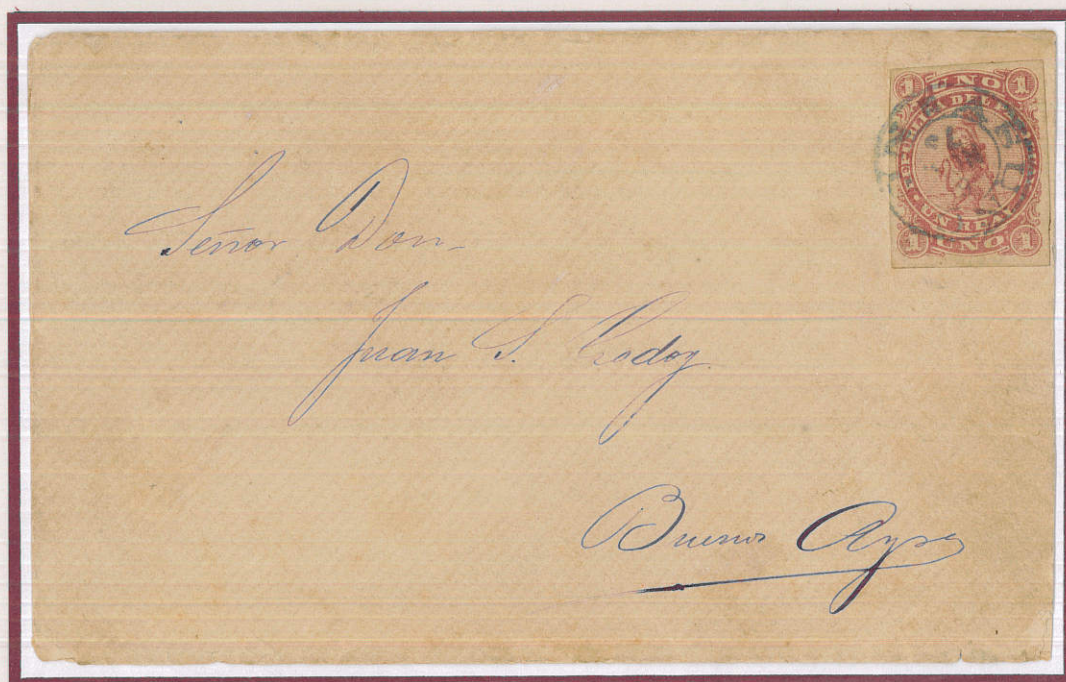 1 UNO 1
REPUBLICA DEL
UN REAL
1 UNO 1
Señor Don
Juan S. Godoy.
Buenos Ayrs